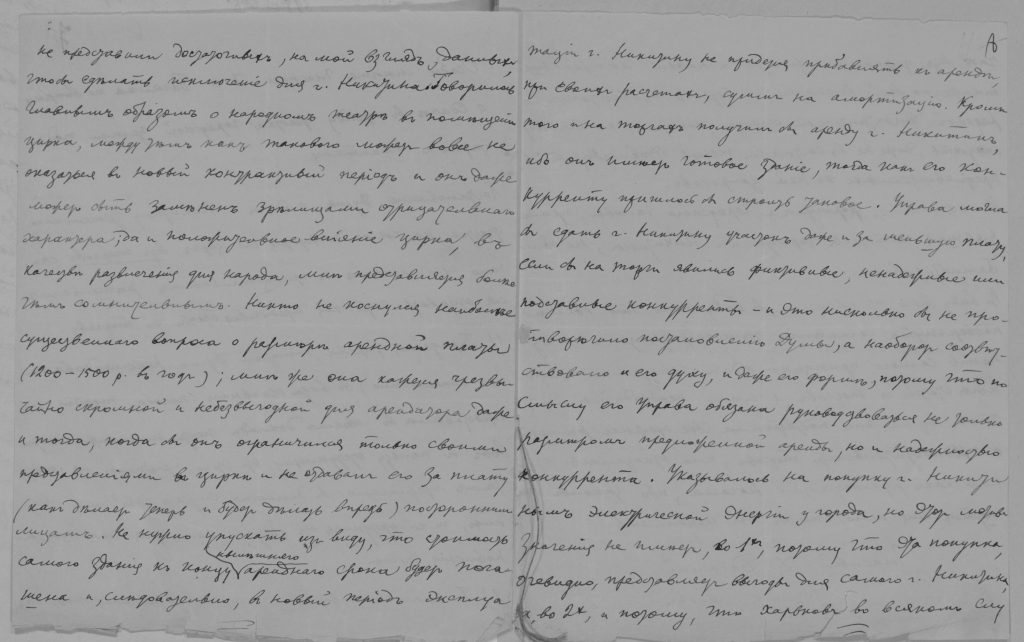 не представили достаточныхъ, на мой взглядъ, данныхъ,
чтобы сдѣлать исключеніе для г. Никитина. Говорилось
главнымъ образомъ о народномъ театрѣ въ помѣщеніи
цирка, между тѣмъ какъ такового можетъ вовсе не
оказаться въ новый контрактный періодъ и онъ даже
можетъ быть замѣненъ зрѣлищами отрицательнаго
характера; да и положительное вліяніе цирка, въ
качествѣ развлеченія для народа, мнѣ представляется болѣе
чѣмъ сомнительнымъ. Никто не коснулся наиболѣе
существеннаго вопроса о размѣрѣ арендной платы
(1200–1500 р. въ годъ); мнѣ же она кажется чрезвы-
чайно скромной и небезвыгодной для арендатора даже
и тогда, когда бы онъ ограничился только своими
представленіями въ циркѣ и не отдавалъ его за плату
(какъ дѣлаетъ теперь и будетъ дѣлать впредь) постороннимъ
лицамъ. Не нужно упускать изъ виду, что стоимость
самого зданія къ концу нынѣшняго аренднаго срока будетъ пога-
шена и, слѣдовательно, въ новый періодъ эксплуа
таціи г. Никитину не придется прибавлять къ арендѣ,
при своихъ расчетахъ, суммъ на амортизацію. Кромѣ
того и на торгахъ получилъ бы аренду г. Никитинъ,
ибо онъ имѣетъ готовое зданіе, тогда какъ его кон-
курренту пришлось бы строить таковое. Управа могла
бы сдать г. Никитину участокъ даже и за меньшую плату,
если бы на торги явились фиктивные, ненадежные или
подставные конкурренты – и это нисколько бы не про-
тиворѣчило постановленію Думы, а наоборотъ соотвѣт-
ствовало и его духу, и даже его формѣ, потому что по
смыслу его Управа обязана руководствоваться не только
размѣромъ предложенной аренды, но и надежностью
конкуррента. Указывалось на покупку г. Никити
нымъ электрической энергіи у города, но этотъ мотивъ
значенія не имѣетъ, во 1хъ, потому что эта покупка,
очевидно, представляетъ выгоды для самого г. Никитина,
а, во 2хъ, и потому, что Харьковъ во всякомъ слу